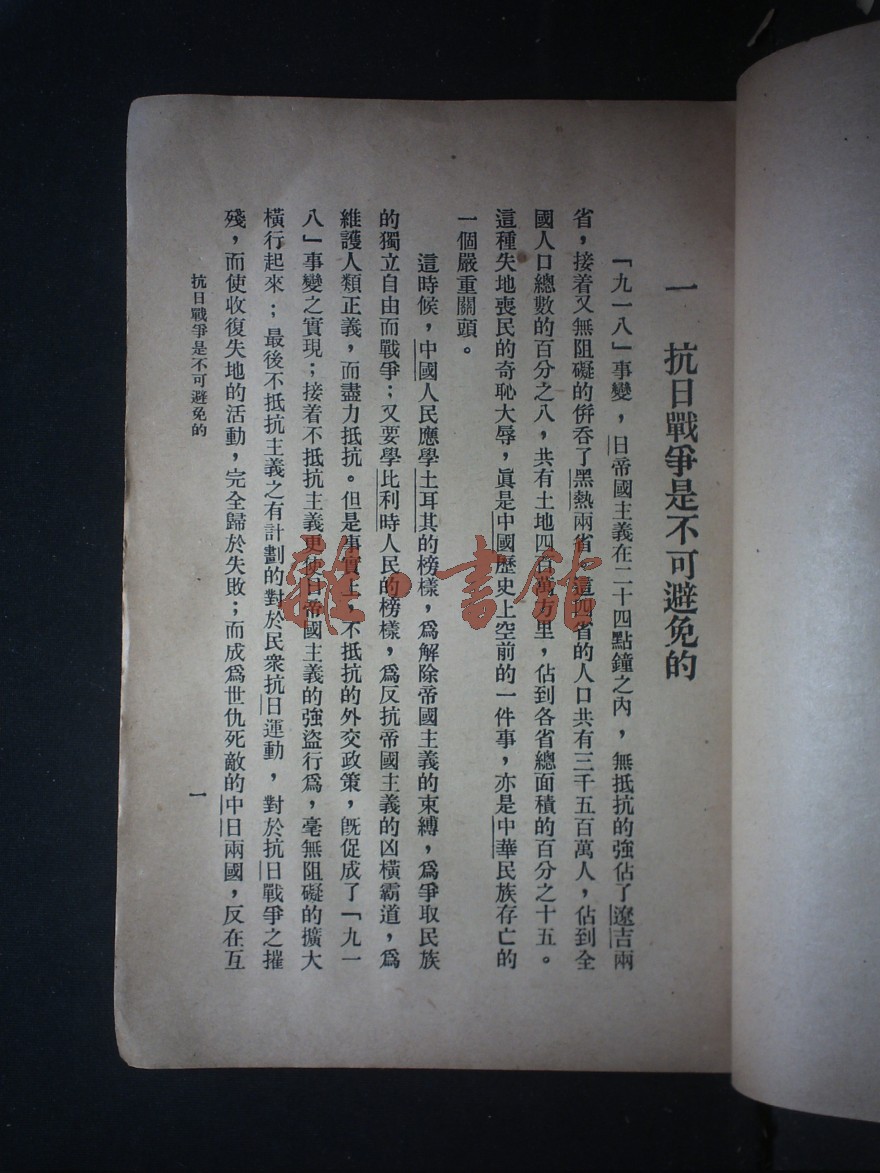 一　抗日戰爭是不可避免的
「九一八」事變，日帝國主義在二十四點鐘之內，無抵抗的強佔了遼吉兩
省，接着又無阻礙的併吞了黑熱兩省。這四省的人口共有三千五百萬人，佔到全
國人口總數的百分之八，共有土地四百萬方里，佔到各省總面積的百分之十五。
這種失地喪民的奇恥大辱，眞是中國歷史上空前的一件事，亦是中華民族存亡的
一個嚴重關頭。
這時候，中國人民應學土耳其的榜樣，爲解除帝國主義的束縛，爲爭取民族
的獨立自由而戰爭；又要學比利時人民的榜樣，爲反抗帝國主義的凶橫霸道，爲
維護人類正義，而盡力抵抗。但是事實上，不抵抗的外交政策，旣促成了「九一
八」事變之實現；接着不抵抗主義更使日帝國主義的強盜行爲，毫無阻礙的擴大
橫行起來；最後不抵抗主義之有計劃的對於民衆抗日運動，對於抗日戰爭之摧
殘，而使收復失地的活動，完全歸於失敗；而成爲世仇死敵的中日兩國，反在互
抗日戰爭是不可避免的
一
雜·書館